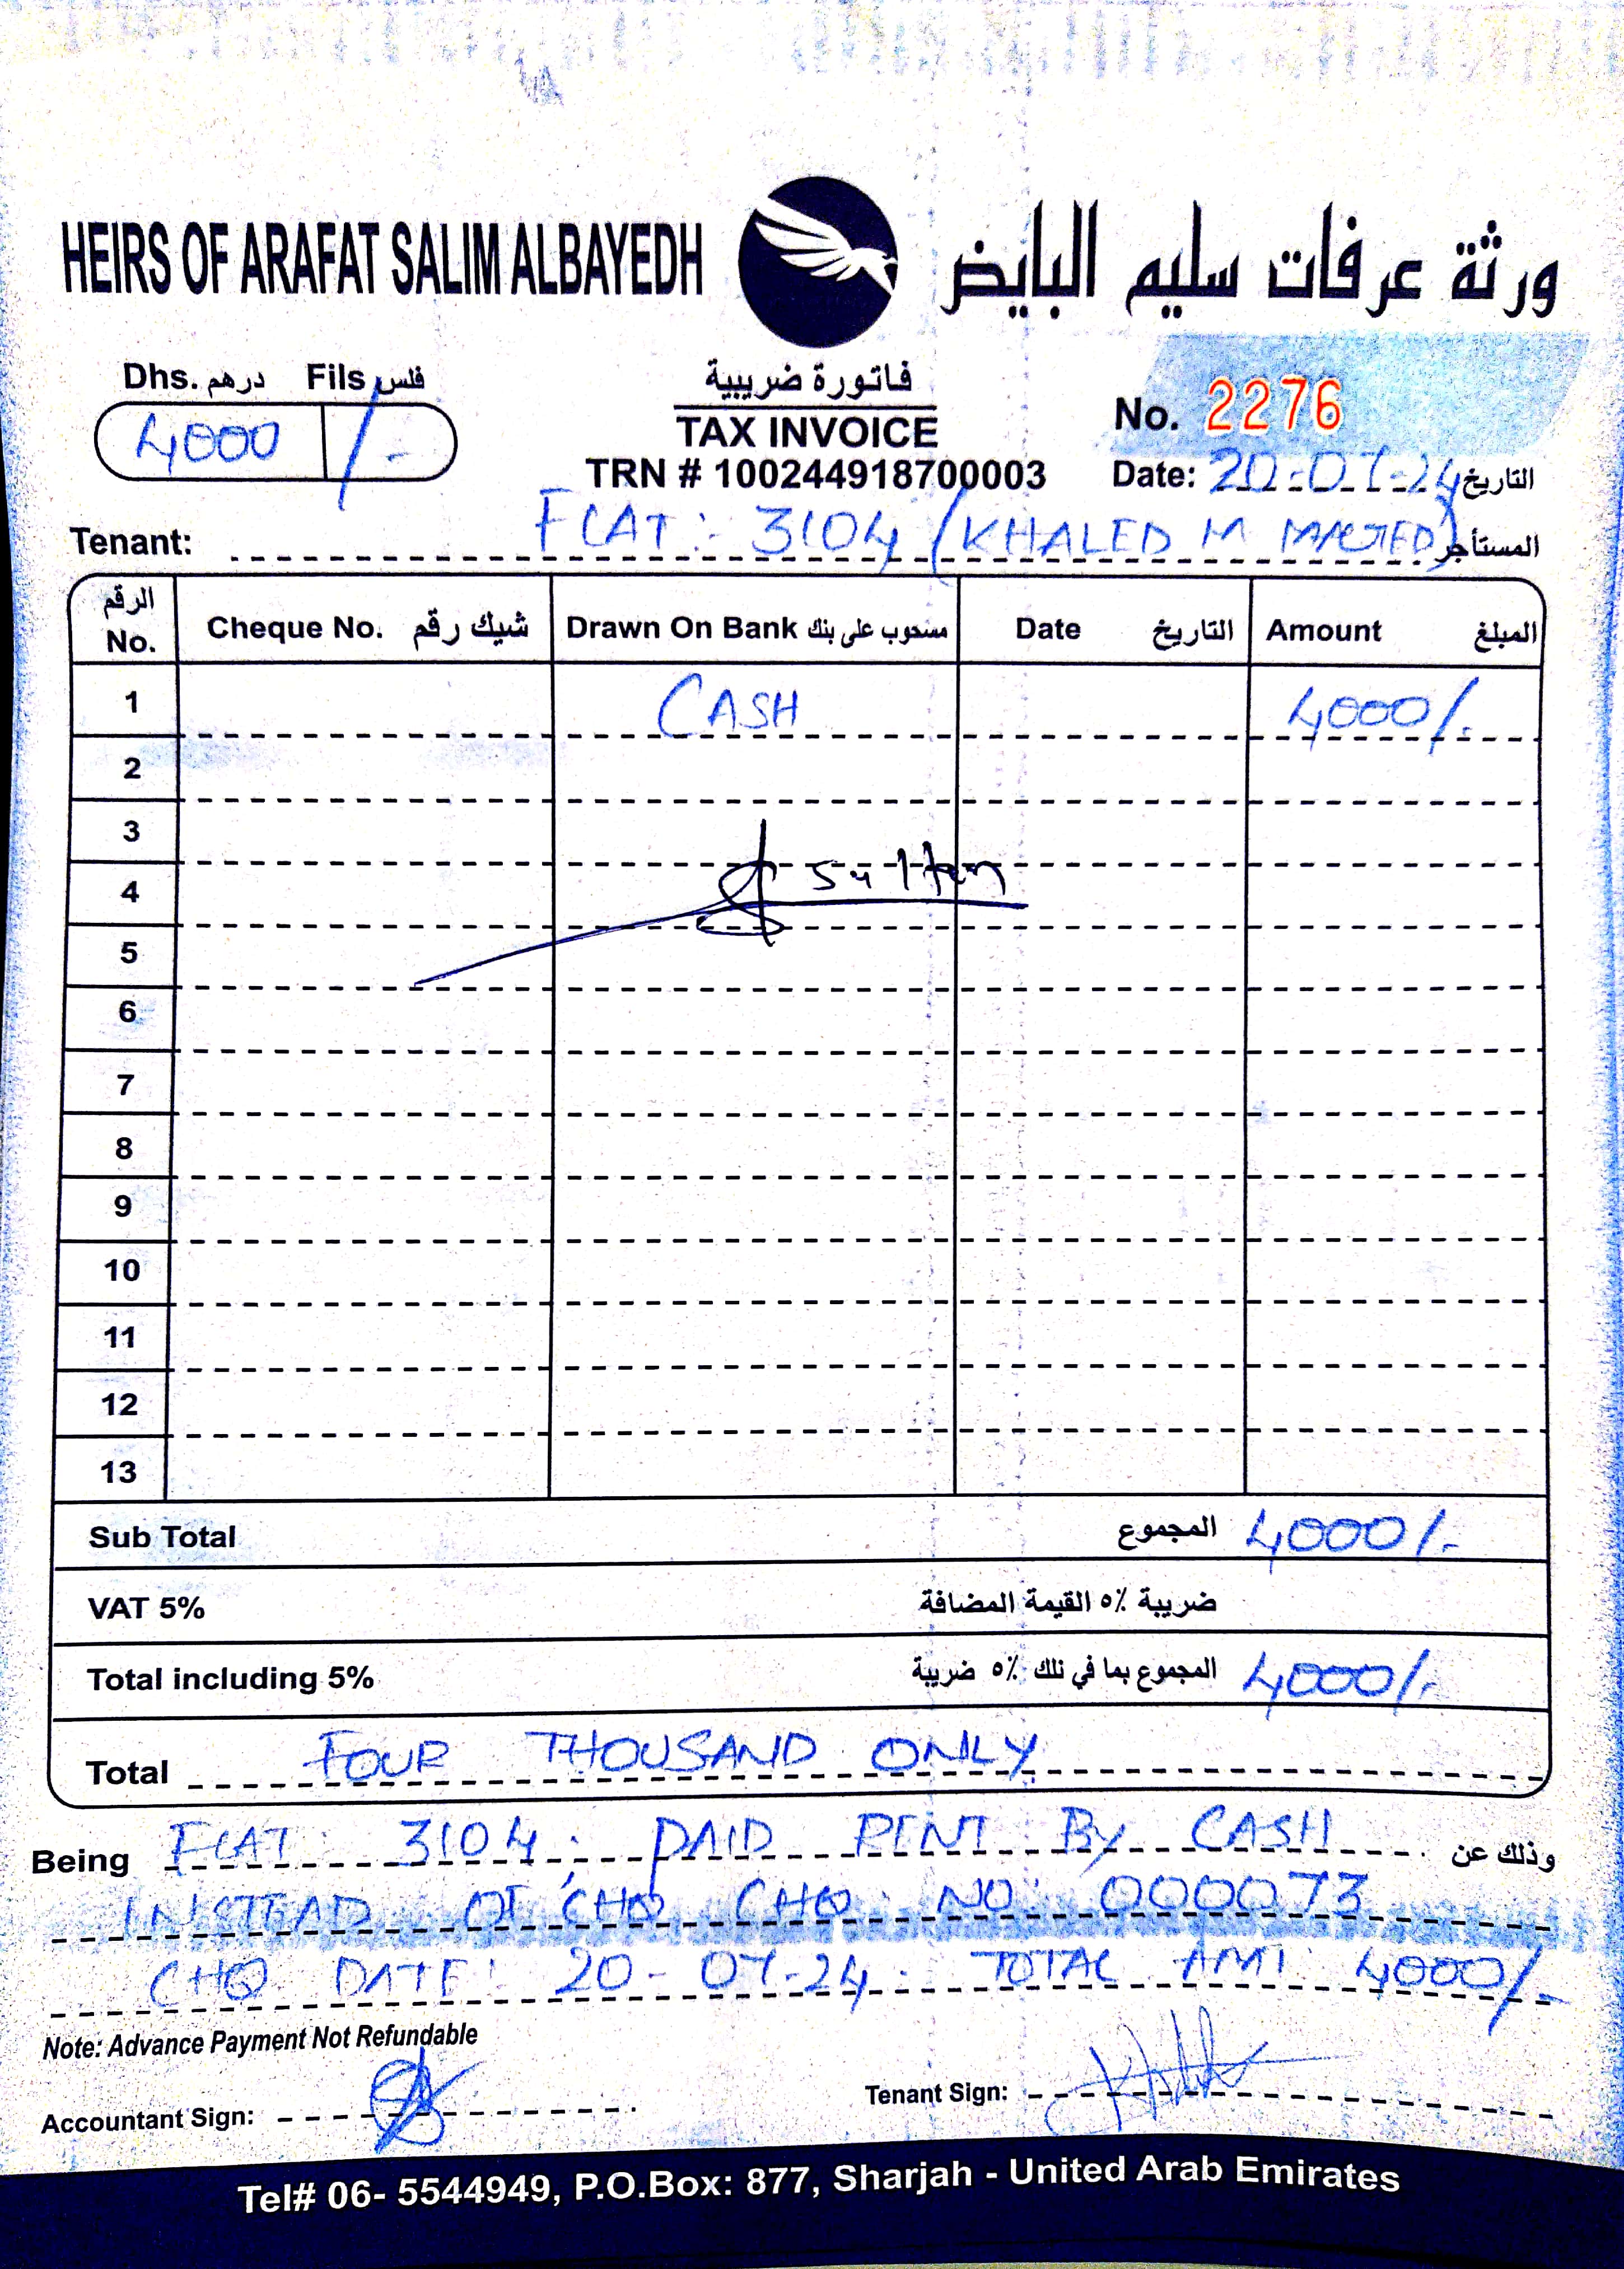 HEIRS OF ARAFAT SALIM ALBAYEDH ورثة عرفات سليم البايض
Dhs. درهم Fils فلس
4000 /-
فاتورة ضريبية
TAX INVOICE
TRN # 100244918700003
No. 2276
Date: 20-07-24 التاريخ
Tenant: FLAT: 3104 (KHALED M المستأجر
الرقم No. Cheque No. شيك رقم Drawn On Bank مسحوب على بنك Date التاريخ Amount المبلغ
1 CASH 4000/-
2
3
4 Sultan
5
6
7
8
9
10
11
12
13
Sub Total المجموع 4000/-
VAT 5% ضريبة ٥٪ القيمة المضافة
Total including 5% المجموع بما في ذلك ٥٪ ضريبة 4000/-
Total FOUR THOUSAND ONLY
Being FLAT: 3104. PAID RENT BY CASH وذلك عن
INSTEAD OF CHQ CHQ NO: 000073
CHQ DATE: 20-07-24. TOTAL AMT: 4000/-
Note: Advance Payment Not Refundable
Accountant Sign: Tenant Sign:
Tel# 06- 5544949, P.O.Box: 877, Sharjah - United Arab Emirates